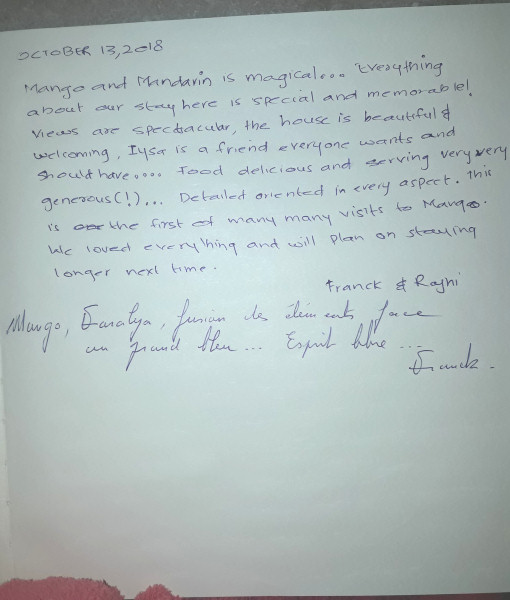 OCTOBER 13, 2018
Mango and Mandarin is magical... Everything
about our stay here is special and memorable!
Views are spectacular, the house is beautiful &
welcoming, Iysa is a friend everyone wants and
should have.... Food delicious and serving very very
generous(!)... Detailed oriented in every aspect. This
is the first of many many visits to Mango.
We loved everything and will plan on staying
longer next time.
Franck & Rajni
Mango, Faralya, fusion des éléments face
au grand bleu... Esprit libre...
Franck.